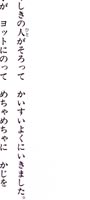 しきの人がそろって　かいすいよくにいきました。
が　ヨットにのって　めちゃめちゃに　かじを